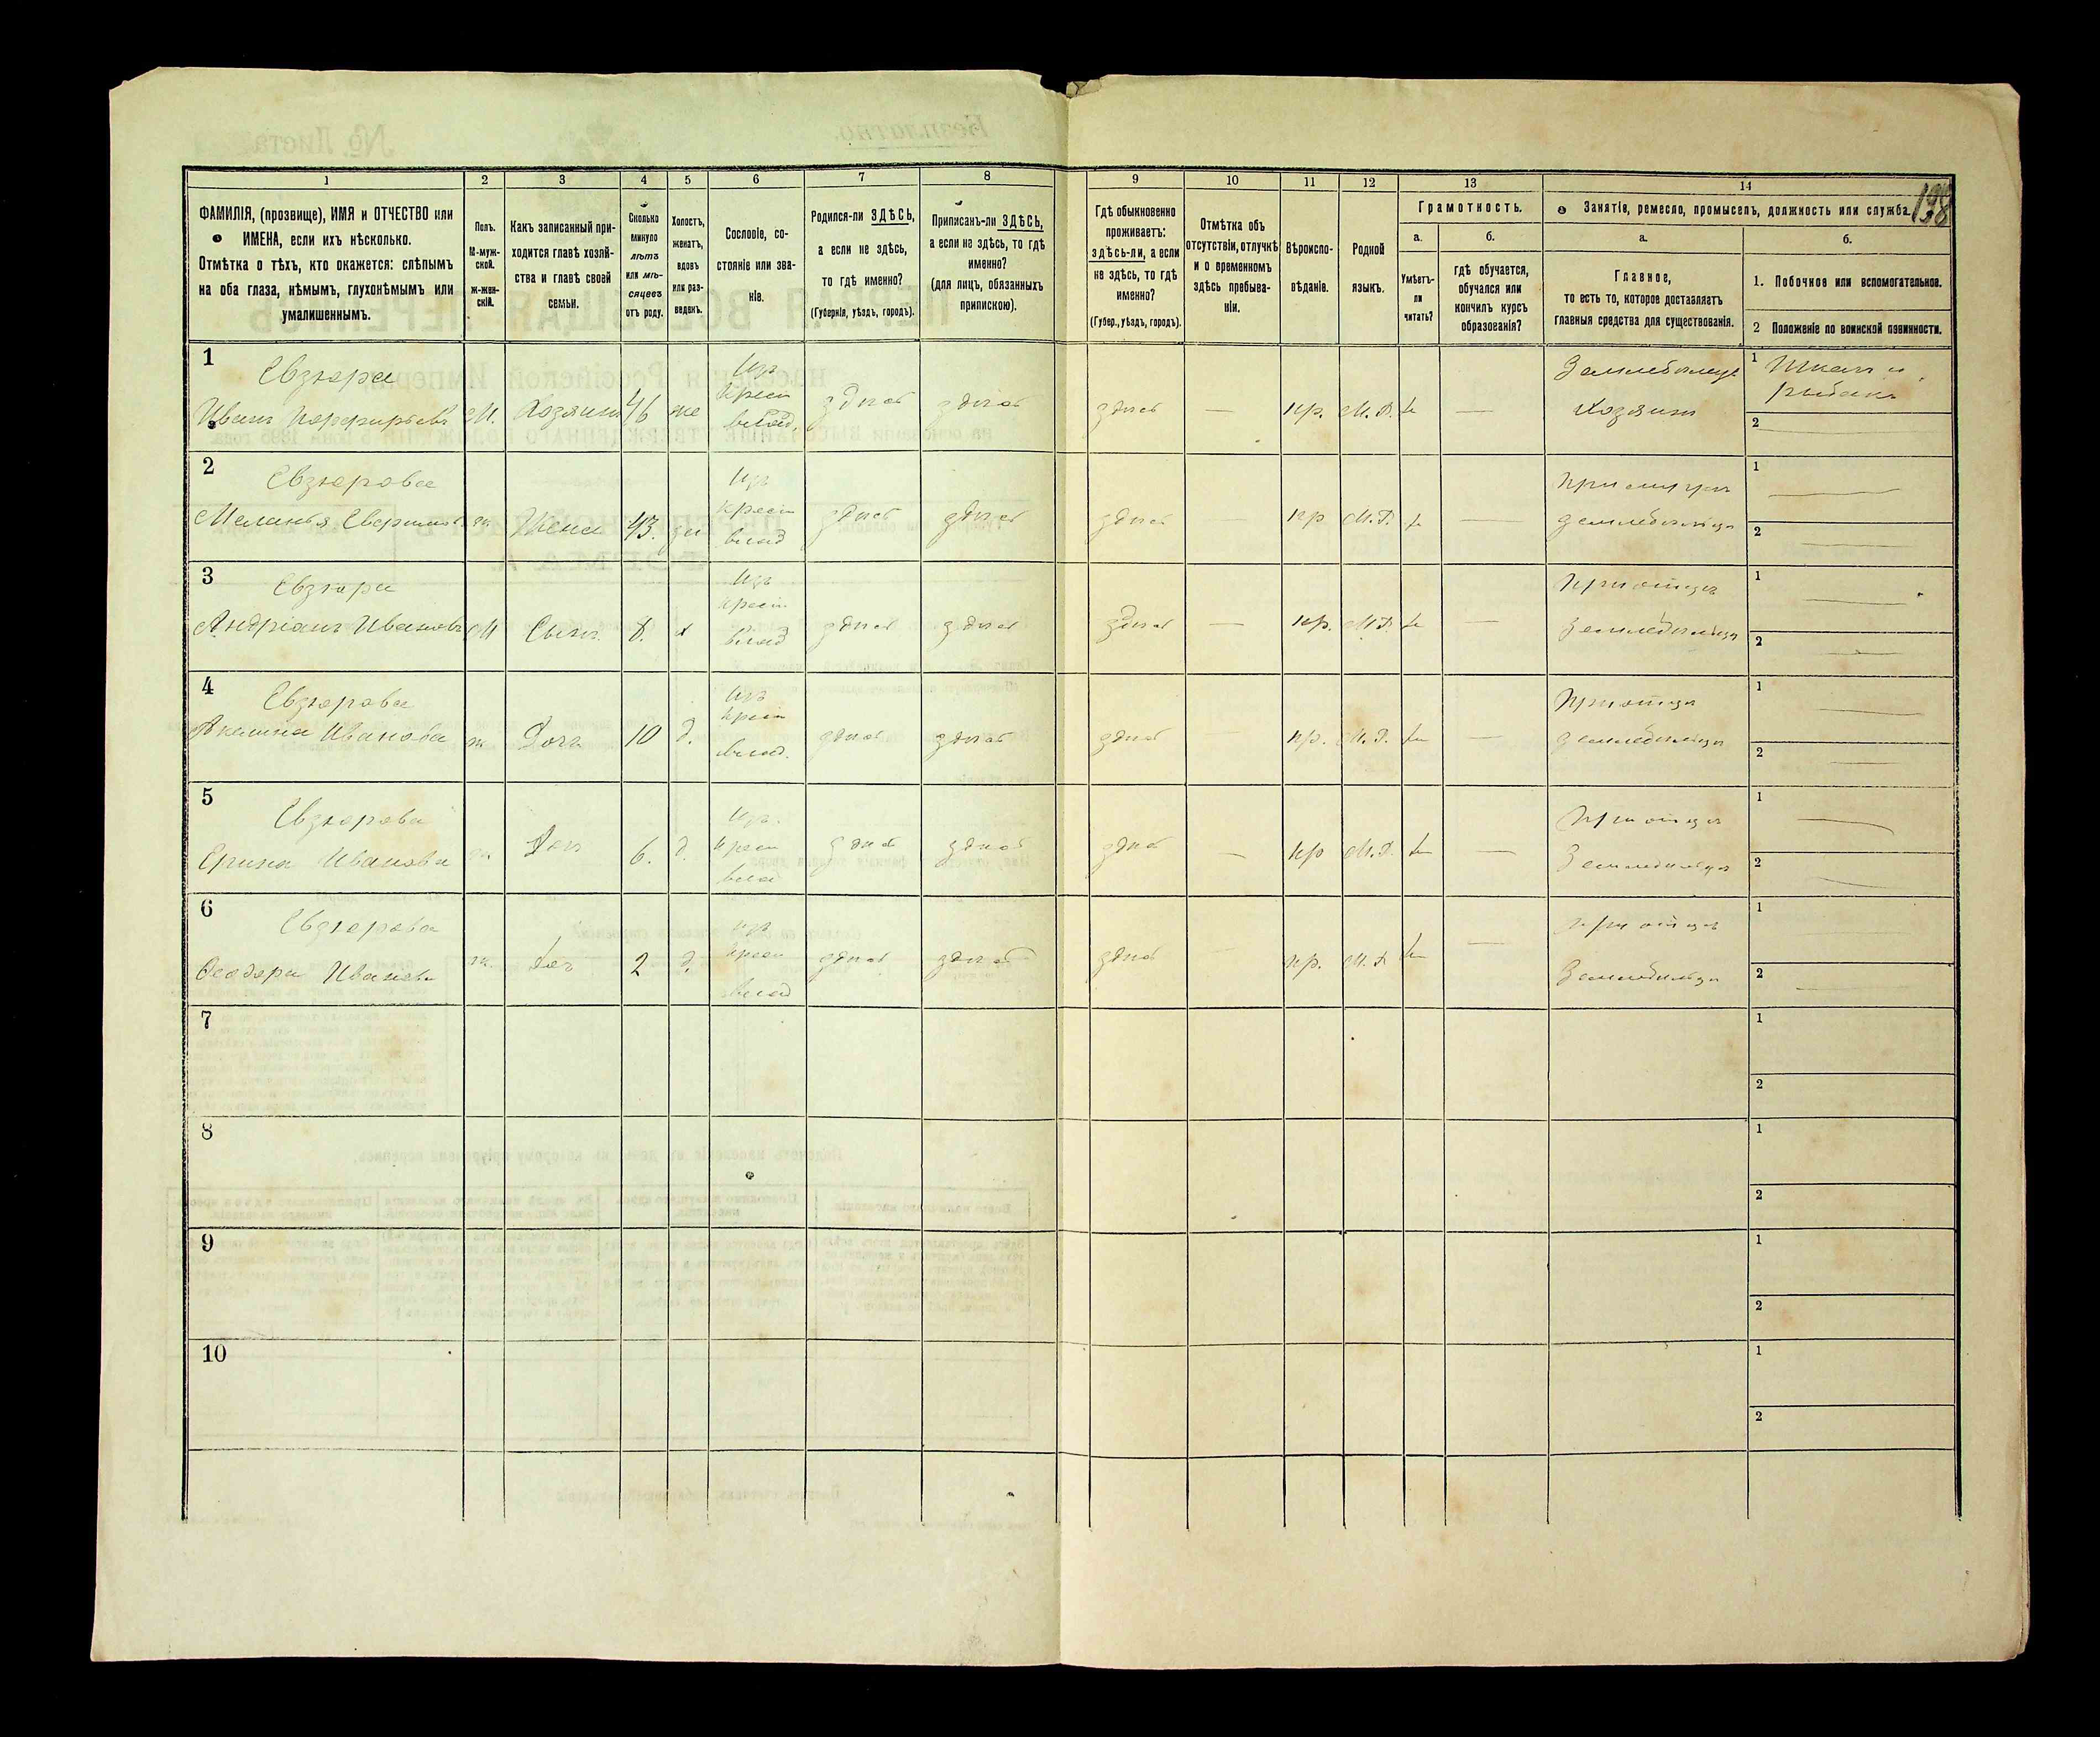 1 2 3 4 5 6 7 8 9 10 11 12 13 14
198
ФАМИЛІЯ, (прозвище), ИМЯ и ОТЧЕСТВО или
ИМЕНА, если ихъ нѣсколько.
Отмѣтка о тѣхъ, кто окажется: слѣпымъ
на оба глаза, нѣмымъ, глухонѣмымъ или
умалишеннымъ.
Полъ.
М-муж-
ской.
ж-жен-
скій.
Какъ записанный при-
ходится главѣ хозяй-
ства и главѣ своей
семьи.
Сколько
минуло
лѣтъ
или мѣ-
сяцевъ
отъ роду.
Холостъ,
женатъ,
вдовъ
или раз-
веденъ.
Сословіе, со-
стояніе или зва-
ніе.
Родился-ли ЗДѢСЬ,
а если не здѣсь,
то гдѣ именно?
(Губернія, уѣздъ, городъ).
Приписанъ-ли ЗДѢСЬ,
а если не здѣсь, то гдѣ
именно?
(для лицъ, обязанныхъ
припискою).
Гдѣ обыкновенно
проживаетъ:
здѣсь-ли, а если
не здѣсь, то гдѣ
именно?
(Губер., уѣздъ, городъ).
Отмѣтка объ
отсутствіи, отлучкѣ
и о временномъ
здѣсь пребыва-
ніи.
Вѣроиспо-
вѣданіе.
Родной
языкъ.
Грамотность.
а.
Умѣетъ-
ли
читать?
б.
гдѣ обучается,
обучался или
кончилъ курсъ
образованія?
Занятіе, ремесло, промыселъ, должность или служба.
а.
Главное,
то есть то, которое доставляетъ
главныя средства для существованія.
б.
1. Побочное или вспомогательное.
2 Положеніе по воинской повинности.
1 Евзюра
Иванъ Порфирьевъ М. Хозяинъ 46 же Изъ крест влад. здѣсь здѣсь здѣсь — пр. М.Р. — Земледѣлецъ хозяинъ
1 рыбакъ
2
2 Евзюрова
Меланья ж Жена 43. Изъ крест влад здѣсь здѣсь здѣсь — пр М.Р. — при мужѣ земледѣлецъ
1
2
3 Евзюра
Андріанъ Ивановъ М Сынъ 8. х Изъ крест влад здѣсь здѣсь здѣсь — пр. М.Р. — При отцѣ земледѣльцѣ
1
2
4 Евзюрова
Акелина Иванова ж Дочь 10 д. Изъ крест влад. здѣсь здѣсь здѣсь — пр. М.Р. — При отцѣ земледѣльцѣ
1
2
5 Евзюрова
Ерина Иванова ж Доч 6. д. Изъ крест влад здѣсь здѣсь здѣсь — пр М.Р. — При отцѣ Земледѣльцѣ
1
2
6 Евзюрова
Феодора Иванова ж. Доч 2 д. изъ крест влад здѣсь здѣсь здѣсь — пр. М.Р — при отцѣ Земледѣльцѣ
1
2
7
1
2
8
1
2
9
1
2
10
1
2